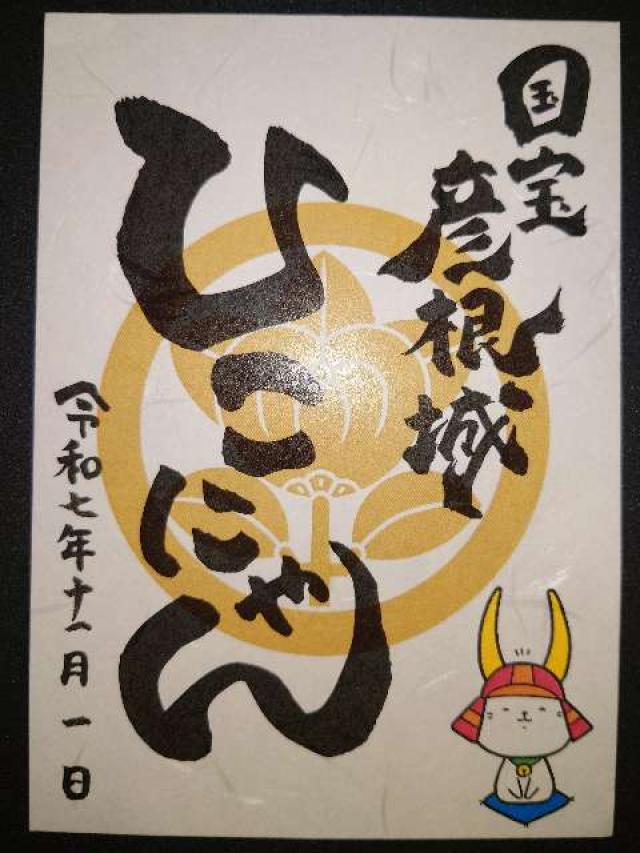 国宝
彦根城
ひこにゃん
令和七年十一月一日